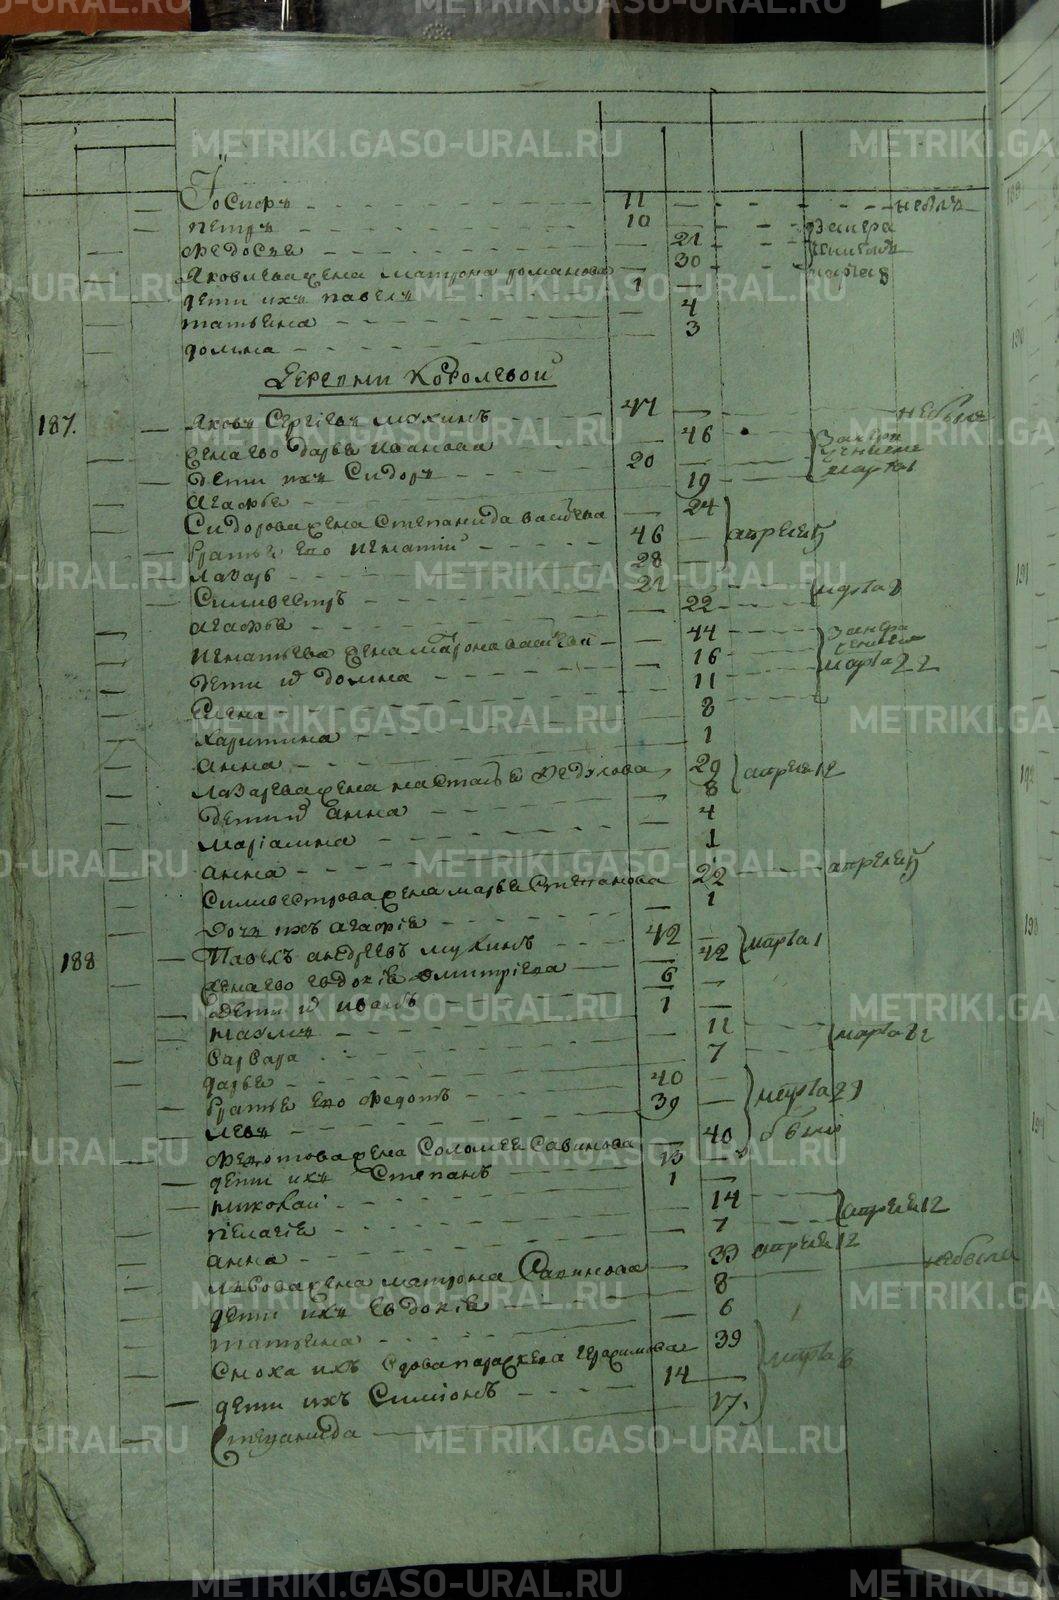 Іосифъ 11 небылъ
Петръ 10 Занера
Федосья 21
Яковлева жена Матрона Романова 30 марта 8
дети ихъ Павелъ 1
Татьяна 4
Домна 3
Деревни Королевой
187. Яковъ Сергіевъ Мухинъ 47 небылъ
жена ево Дарья Иванова 46
Дети ихъ Сидоръ 20 марта 1
Агафья 19
Сидорова жена Степанида Васильева 24
Братья ево Игнатій 46 апреля 5
Лазарь 28
Силивестръ 21 марта 8
Агафья 22
Игнатьева жена Матрона Васильева 44
Дети и Домна 16 марта 22
Елена 11
Харитина 8
Анна 1
Лазарева жена Настасья Федулова 29 апреля 12
Дети и Анна 8
Маріамна 4
Анна 1
Силивестрова жена Марья Степанова 22 апреля 5
Дочь ихъ Агафія 1
188 Павелъ Андреевъ Мухинъ 42 марта 1
жена ево Евдокія Дмитріева 42
Дети и Иванъ 6
1
Варвара 11 марта 22
Дарья 7
Братья ево Федотъ 40 марта 29
Левъ 39 были
Федотова жена Соломея Савинова 40
дети ихъ Степанъ 13
Николай 1
Пелагея 14 апреля 12
Анна 7
Львова жена Матрона Савинова 33 апреля 12
дети ихъ Евдокія 8 небыли
Татьяна 6
Сноха ихъ вдова Параскева Герасимова 39 марта 8
дети ихъ Симіонъ 14
Степанида 17.
METRIKI.GASO-URAL.RU